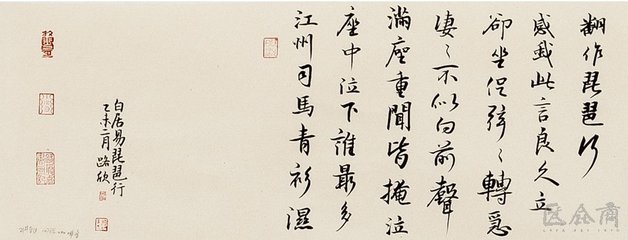 翻作琵琶行
感我此言良久立
卻坐促弦〻轉急
凄〻不似向前聲
滿座重聞皆掩泣
座中泣下誰最多
江州司馬青衫濕
白居易琵琶行
乙未二月路欣